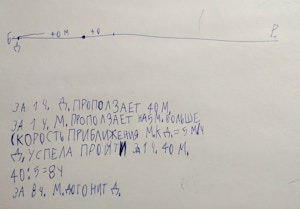 Б 40 М 40 Р.
Д.
ЗА 1 Ч. Д. ПРОПОЛЗАЕТ 40 М.
ЗА 1 Ч. М. ПРОПОЛЗАЕТ НА 5 М. БОЛЬШЕ.
СКОРОСТЬ ПРИБЛИЖЕНИЯ М. К Д. = 5 М/Ч
Д. УСПЕЛА ПРОЙТИ ЗА 1 Ч. 40 М.
40:5=8Ч
ЗА 8Ч. М. ДОГОНИТ Д.